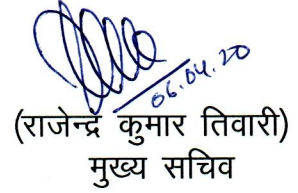 06.04.20
(राजेन्द्र कुमार तिवारी)
मुख्य सचिव